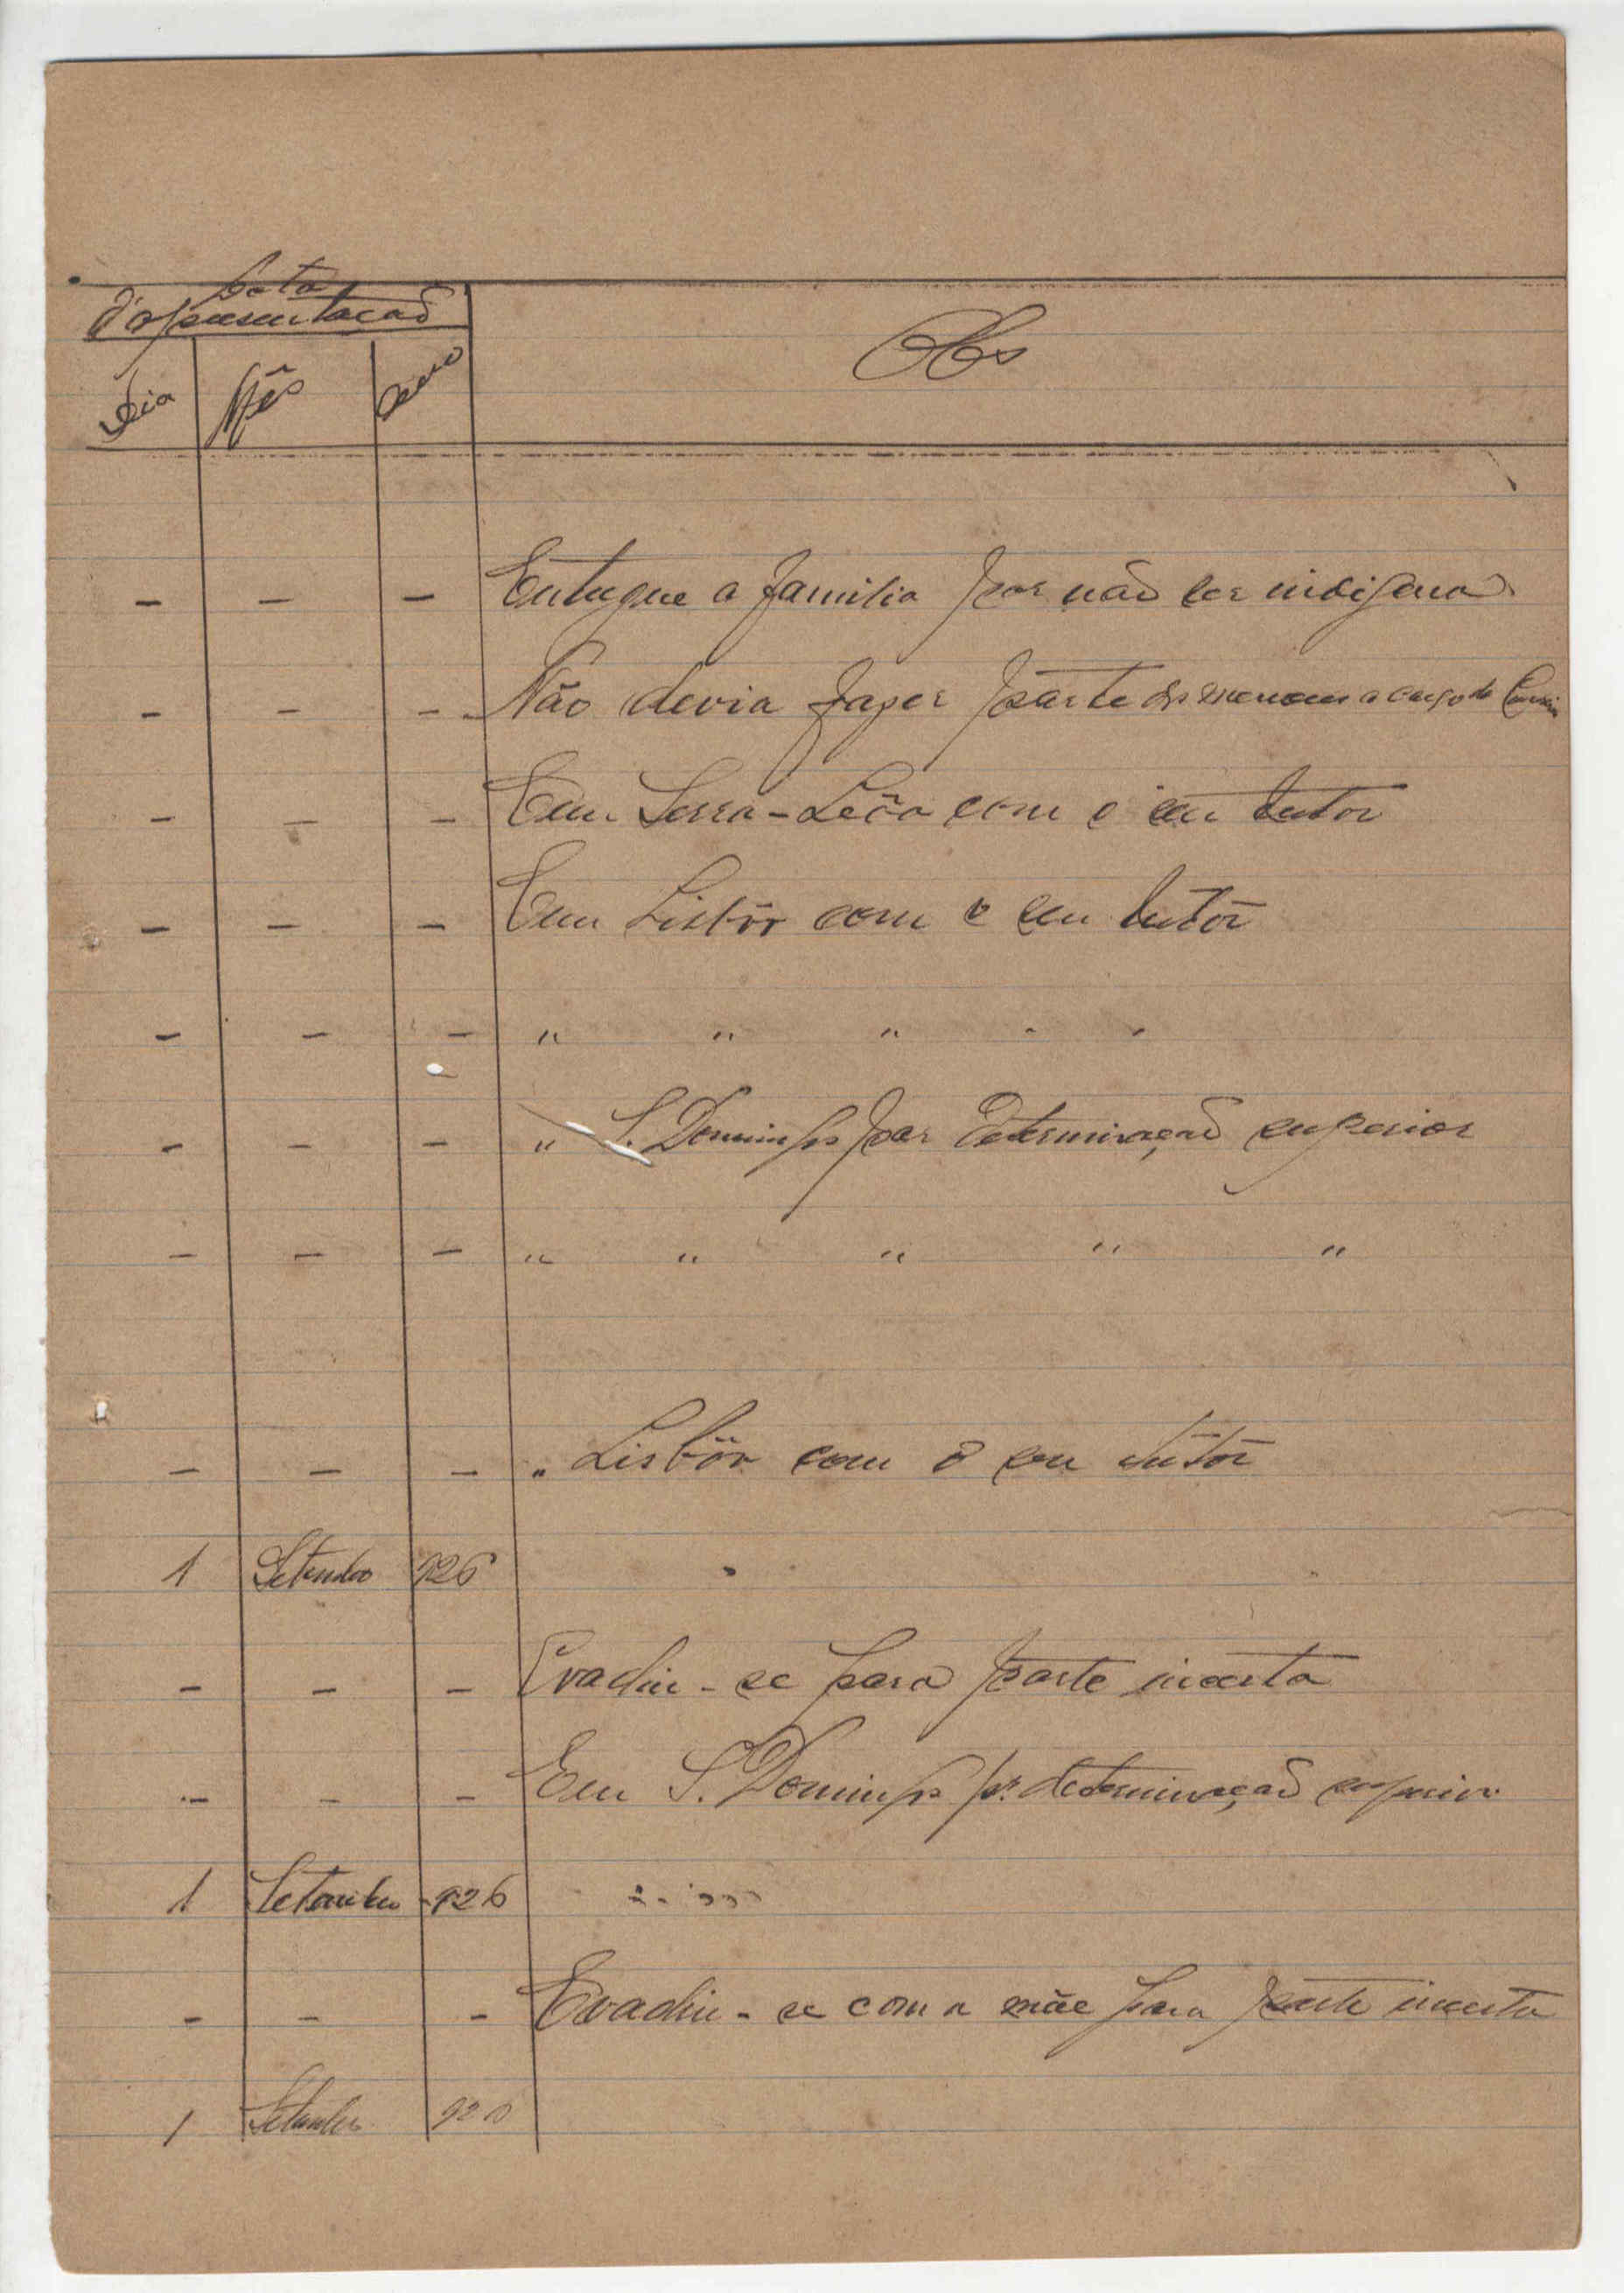 Data
d'apresentacão
Dia Mês Ano Obs
- - - Entregue a familia por não ser indigena
- - - Não devia fazer parte dos menores a cargo da
- - - Em Serra-Leôa com o seu tutor
- - - Em Lisbôa com o seu tutor
- - - " " " " "
- - - " S. Domingos por determinação superior
- - - " " " " "
- - - " Lisbôa com o seu tutor
1 Setembro 926
- - - Evadiu-se para parte incerta
- - - Em S. Domingos pr. determinação superior
1 Setembro 926
- - - Evadiu-se com a mãe para parte incerta
1 Setembro